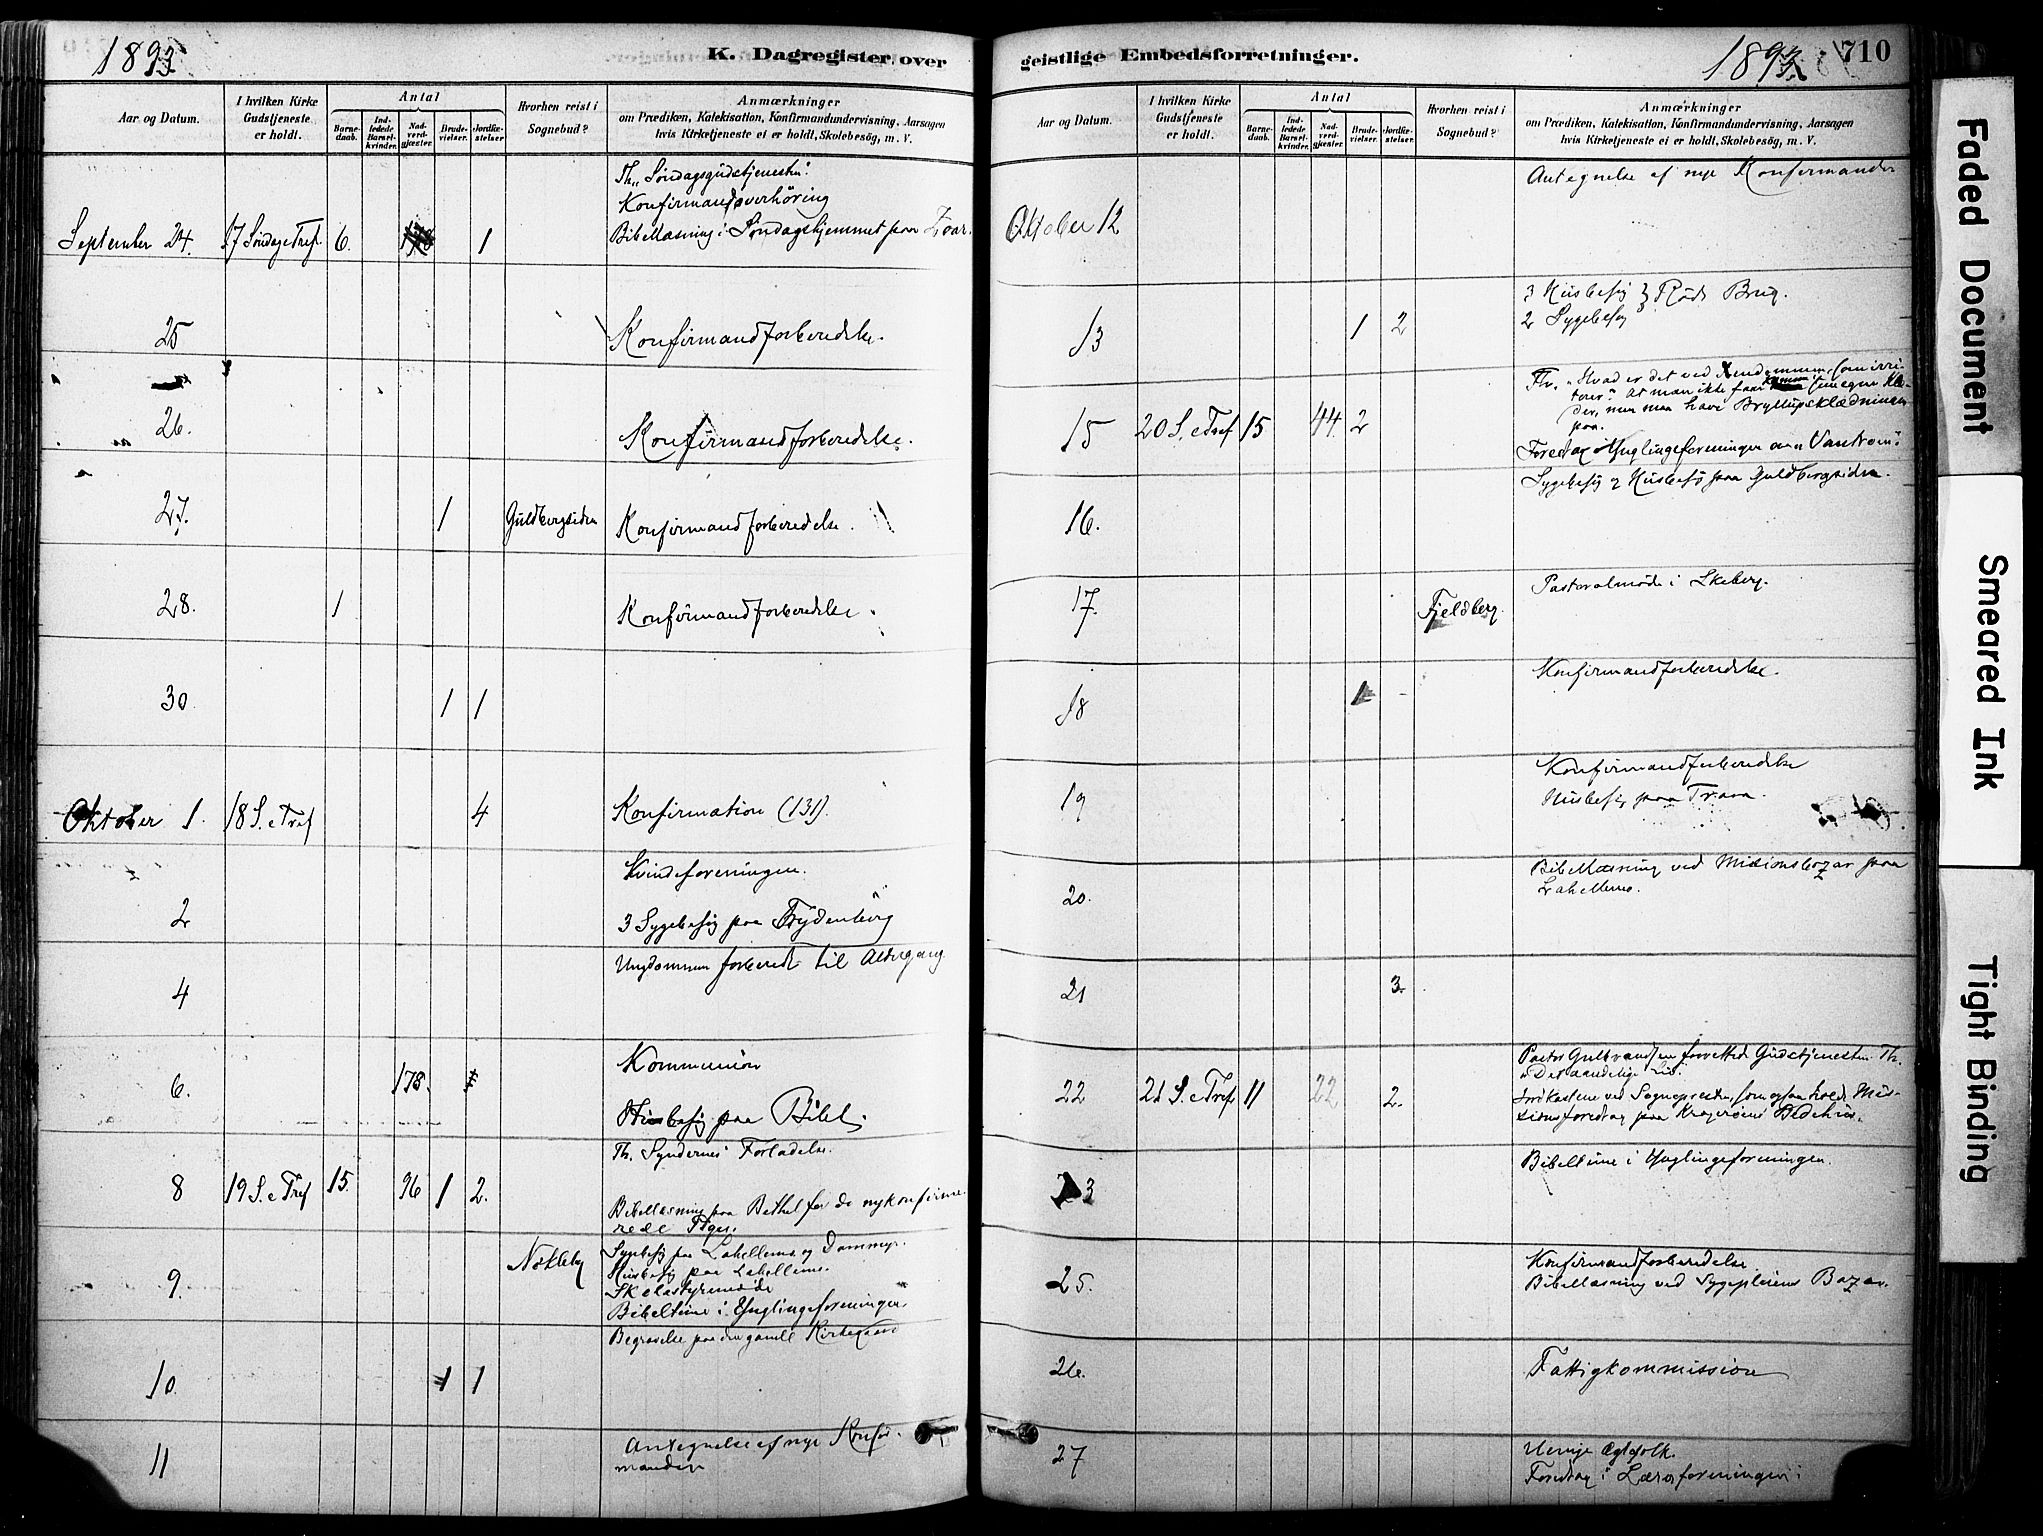 1893
K. Dagregister over
Aar og Datum.
I hvilken Kirke Gudstjeneste er holdt.
Antal
Barnedaab.
Indledede Barselkvinder.
Nadverdgjæster.
Brudevielser.
Jordfæstelser.
Hvorhen reist i Sognebud?
Anmærkninger
om Prædiken, Katekisation, Konfirmandundervisning, Aarsagen
hvis Kirketjeneste ei er holdt, Skolebesøg, m. V.
Th. "Søndagsgudstjenesten".
Konfirmandoverhöring
September 24. 17 Søndag e Tref. 6. 1 Bibellæsning i Søndagshjemmet paa Zoar.
25 Konfirmandforberedelse.
26. Konfirmandforberedelse.
27. 1 Guldbergsiden Konfirmandforberedelse.
28. 1 Konfirmandforberedelse.
30 1 1
Oktober 1. 18 S. e Tref 4 Konfirmation (131).
Kvindeforeningen.
2 3 Sygebesög paa Frydenborg
Ungdommen forberedt til Altergang
4
Kommunion
6. 178.
Husbesög paa
Th. Syndernes Forladelse.
8 19 S. e Tref 15. 96 1 2.
Bibellæsning paa Bethel for de nykonfirmerede Piger.
9. Nøkleby Sygebesög paa Lahellemo og Dammyr.
Husbesög paa Lahellemo.
Skolestyremöde
Bibeltime i Ynglingeforeningen
Begravelse paa den gamle Kirkegaard
10. 1 1
11 Antegnelse af nye Konfirmander
geistlige Embedsforretninger.
1893
710
Aar og Datum.
I hvilken Kirke Gudstjeneste er holdt.
Antal
Barnedaab.
Indledede Barselkvinder.
Nadverdgjæster.
Brudevielser.
Jordfæstelser.
Hvorhen reist i Sognebud?
Anmærkninger
om Prædiken, Katekisation, Konfirmandundervisning, Aarsagen
hvis Kirketjeneste ei er holdt, Skolebesøg, m. V.
Antegnelse af nye Konfirmander
Oktober 12
3 Husbesög } Röds Brug.
2 Sygebesög
13 1 2
Th. "Hvad er det ved Kristendommen, som irriterer" At man ikke faar komme i sine egne Klæder, men maa have Bryllupsklædningen paa.
15 20 S. e Tref 15 44. 2
Foredrag i Ynglingeforeningen om "Vantroen".
Sygebesög og Husbesög paa Guldbergsiden.
16.
17. Fjeldberg. Pastoralmöde i Skeberg.
18 1 Konfirmandforberedelse.
19 Konfirmandforberedelse
Husbesög paa Trara.
20. Bibellæsning ved Missionsbazar paa Lahellemo.
21 3.
Pastor Gulbrandsen forrettede Gudstjenesten Th. "Det aandelige Liv".
22 21 S. e Tref 11 22. 2. Jordkastene ved Sognepresten, som ogsaa holdt Missionsforedrag paa Kragerøens Bedehus.
23 Bibeltime i Ynglingeforeningen.
25. Konfirmandforberedelse.
Bibellæsning ved Sygepleiens Bazar.
26. Fattigkommission
27 Uenige Ægtefolk.
Foredrag i Lærerforeningen
Faded Document
Smeared Ink
Tight Binding